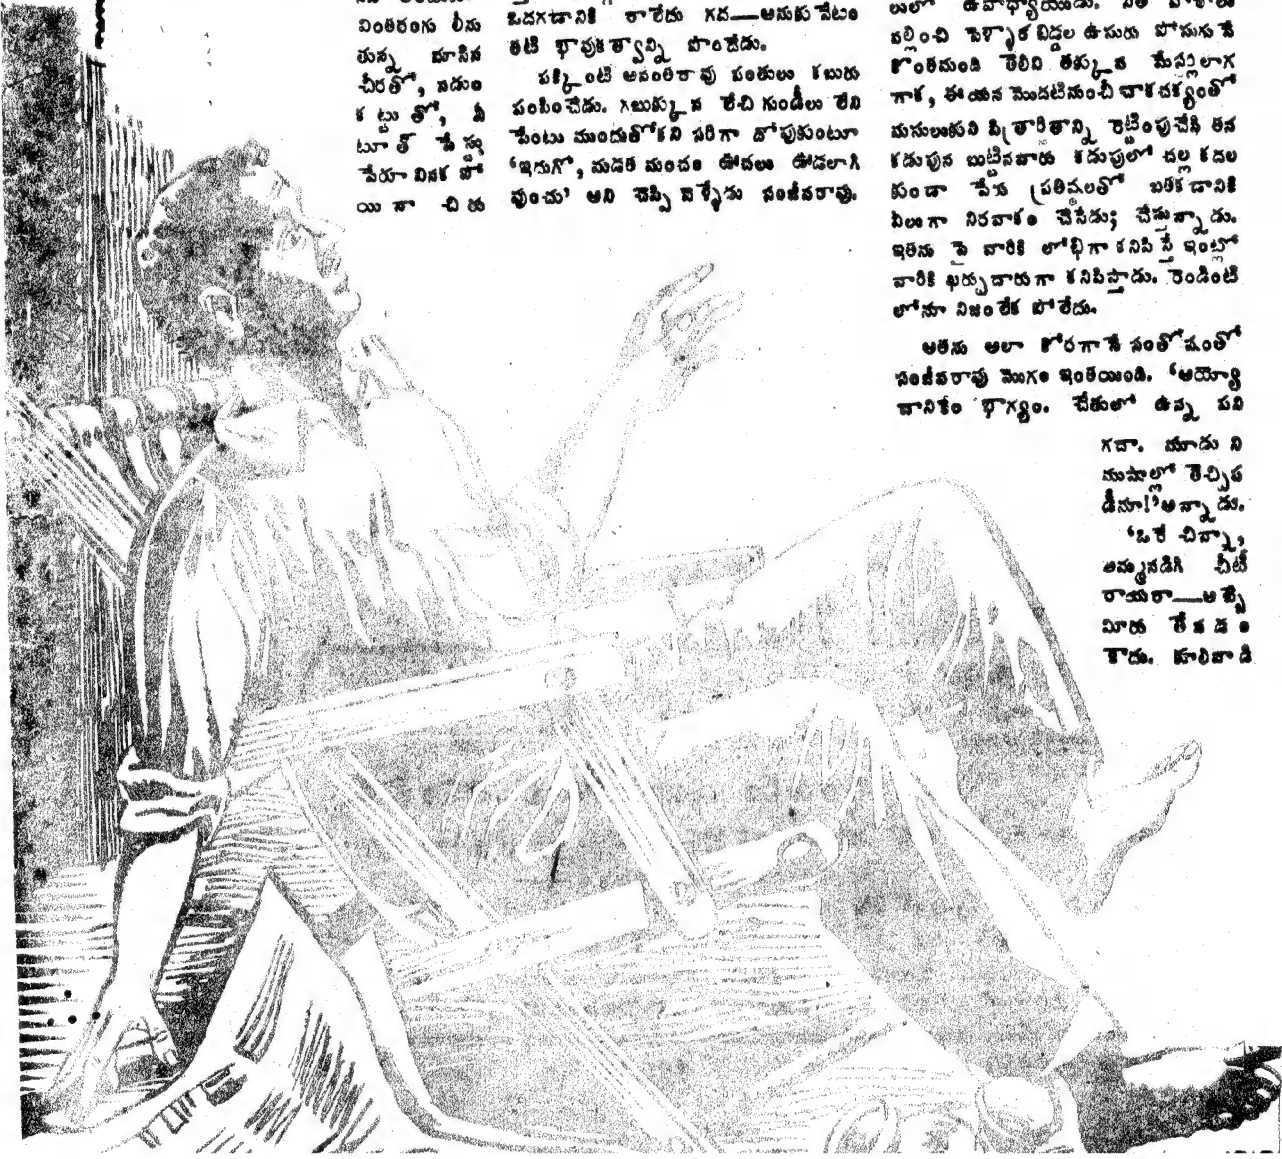 వింతరంగు లీను
తున్న మాసిన
చీరతో, నడుం
కట్టుతో, వీ
పేరూ వినక పో
యినా చిరు
ఒదగడానికి రాలేదు గద—అనుకునేటం
తటి భావుకత్వాన్ని పొందేడు.
పక్కింటి అనంతరావు పంతులు కబురు
పంపించేడు. గబుక్కున లేచి గుండీలు లేని
పేంటు ముందుతోకని సరిగా దోపుకుంటూ
'ఇదుగో, మడత మంచం ఊచలు ఊడలాగి
వుంచు' అని చెప్పి వెళ్ళేను సంజీవరావు.
లులో ఉపాధ్యాయుడు.
వల్లించి పిల్కార బిడ్డల ఉసురు పోసుగునే
కొంతమంది తెలివి తక్కువ మేస్టర్లలాగ
గాక, ఈయన మొదటినుంచీ చాకచక్యంతో
మసులుకుని పిత్రార్జితాన్ని రెట్టింపుచేసి తన
కడుపున బుట్టినవారు కడుపులో చల్ల కదల
కుండా పేరు ప్రతిష్ఠలతో బతకడానికి
వీలుగా నిరవాకం చేసేడు; చేస్తున్నాడు.
ఇతను పై వారికి లోభిగా కనిపిస్తే ఇంట్లో
వారికి ఖర్చుదారుగా కనిపిస్తాడు. రెండింటి
లోనూ నిజం లేక పోలేదు.
అతను అలా కోరగానే సంతోషంతో
సంజీవరావు మొగం ఇంతయింది. 'అయ్యో
దానికేం భాగ్యం. చేతులో ఉన్న పని
గదా. మూడు ని
ముషాల్లో తెచ్చిప
డీనూ!' అన్నాడు.
'ఒరే చిన్నా,
అమ్మనడిగి చీటీ
రాయరా—అబ్బే
మీరు తేవడం
కాదు. కూలివాడి